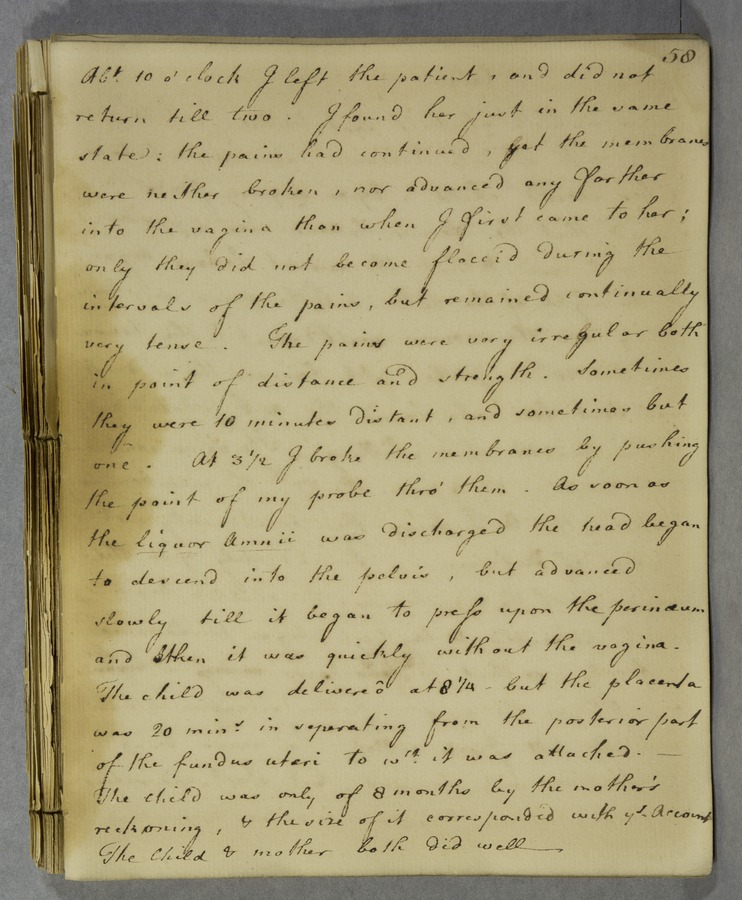 58
Abt. 10 o'clock I left the patient, and did not
return till two. I found her just in the same
state: the pains had continued, yet the membranes
were neither broken, nor advanced any farther
into the vagina than when I first came to her;
only they did not become flaccid during the
intervals of the pains, but remained continually
very tense. The pains were very irregular both
in point of distance and strength. Sometimes
they were 10 minutes distant, and sometimes but
one. At 3 1/2 I broke the membranes by pushing
the point of my probe thro' them. As soon as
the liquor Amnii was discharged the head began
to descend into the pelvis, but advanced
slowly till it began to press upon the perinæum
and then it was quickly without the vagina.
The child was delivered at 8 1/4 - but the placenta
was 20 mins. in seperating from the posterior part
of the fundus uteri to wch. it was attached. —
The child was only of 8 months by the mother's
reckoning, & the size of it corresponded with ys. Account
The Child & mother both did well —